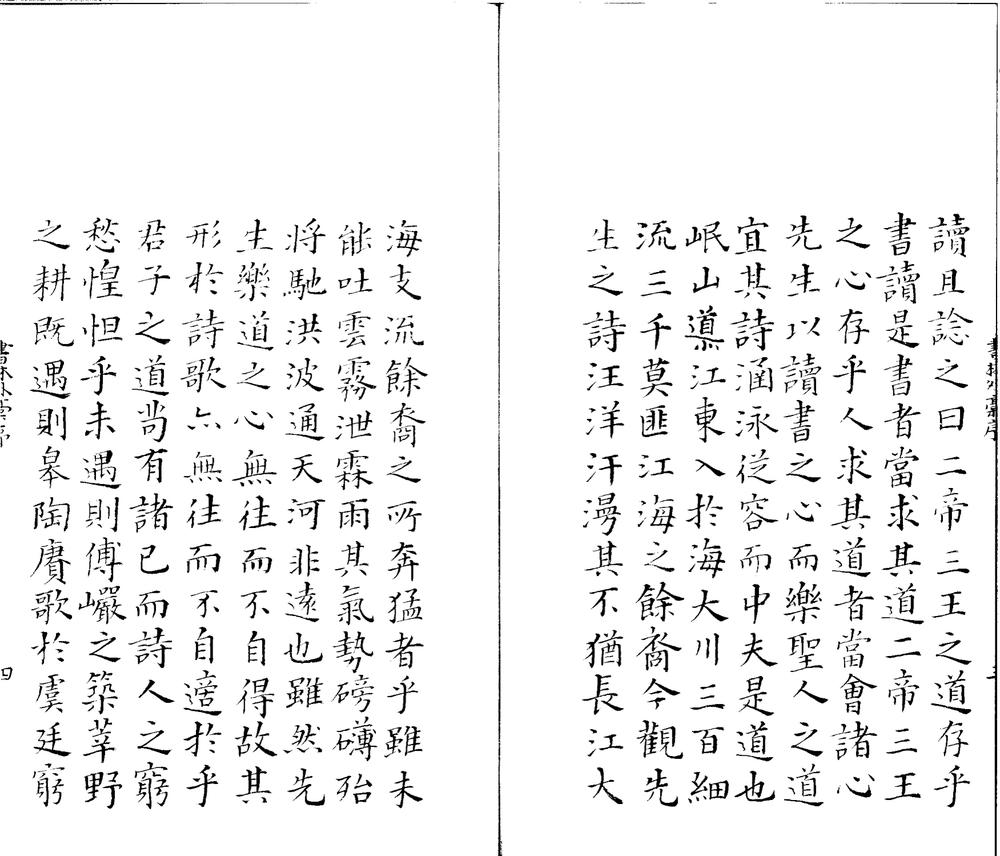 讀且諗之曰二帝三王之道存乎
書讀是書者當求其道二帝三王
之心存乎人求其道者當會諸心
先生以讀書之心而樂聖人之道
宜其詩涵泳從容而中夫是道也
岷山導江東入於海大川三百細
流三千莫匪江海之餘裔今觀先
生之詩汪洋汗漫其不猶長江大
海支流餘裔之所奔猛者乎雖未
能吐雲霧泄霖雨其氣勢磅礴殆
將馳洪波通天河非遠也雖然先
生樂道之心無往而不自得故其
形於詩歌亦無往而不自適於乎
君子之道尚有諸己而詩人之窮
愁惶怛乎未遇則傅巖之築莘野
之耕既遇則皋陶賡歌於虞廷窮
四